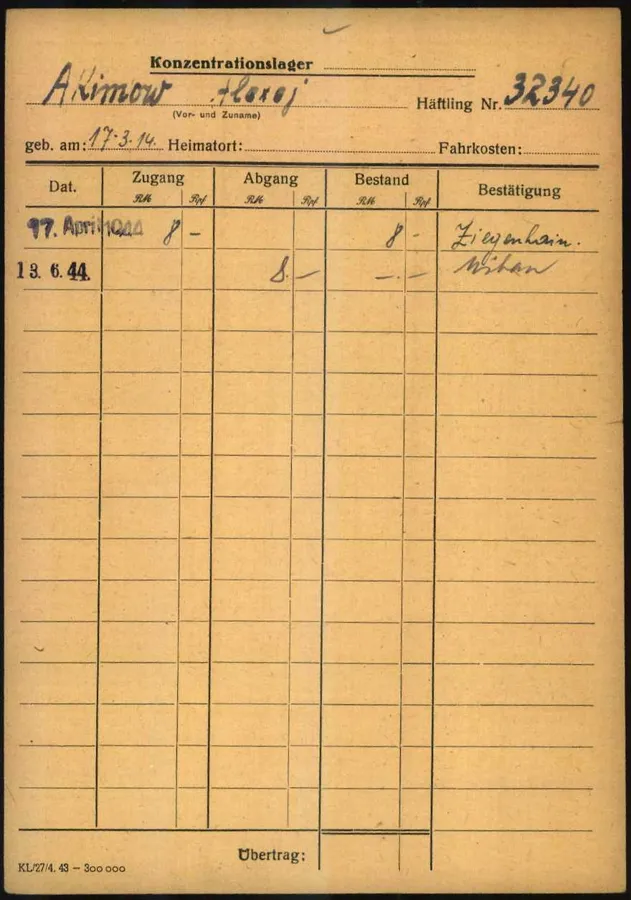 Konzentrationslager
Akimow Alexej
Häftling Nr. 32340
(Vor- und Zuname)
geb. am: 17.3.14. Heimatort: Fahrkosten:
Dat. Zugang Abgang Bestand Bestätigung
RM Rpf RM Rpf RM Rpf
17. April 1944 8 - 8 - Ziegenhain.
13. 6. 44. 8.- -.-
Übertrag:
KL/27/4. 43 - 300 000